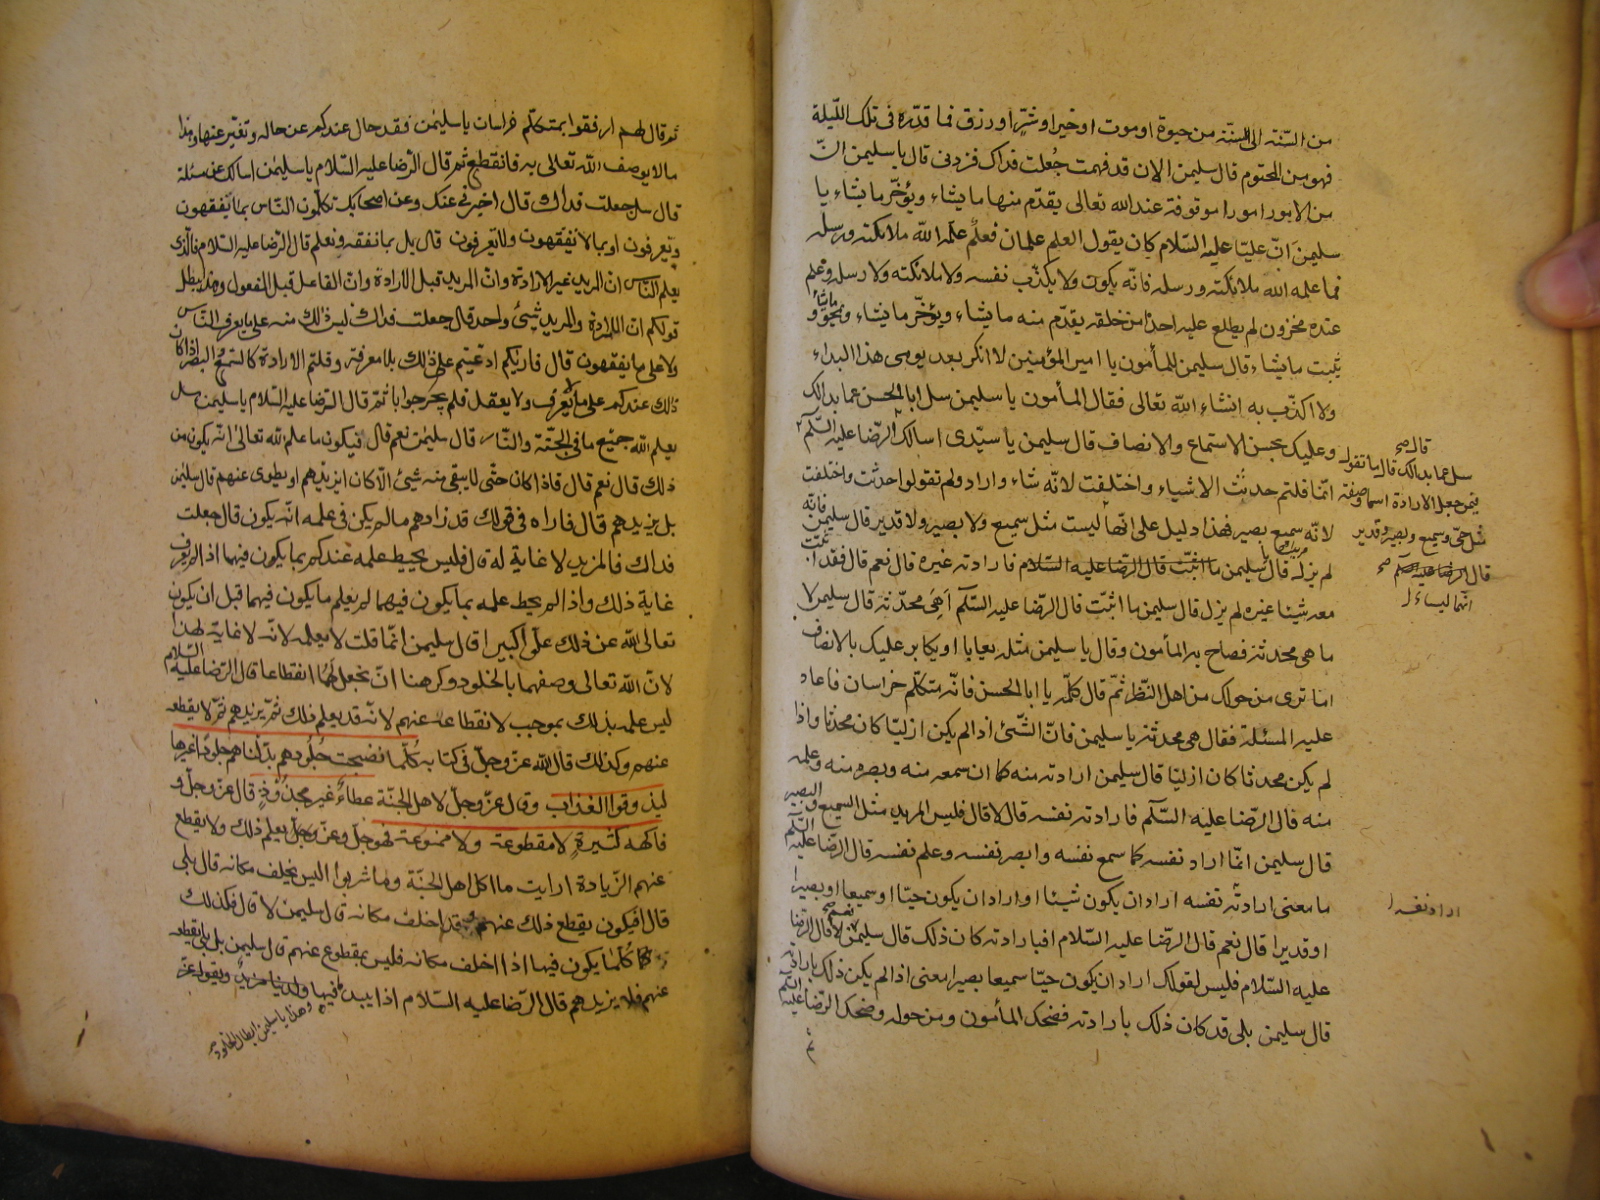 من السّنة الى السنة من حيوة او موت او خير او شرّ او رزق فما قدّره فى تلك اللّيلة
فهو من المحتوم قال سليمن الان قد فهمت جُعلت فداك فزدنى قال يا سليمن انّ
من الامور امورا موقوفة عند الله تعالى يقدّم منها ما يشاء ويؤخّر ما يشاء يا
سليمن انّ عليّا عليه السّلام كان يقول العلم علمان فعلم علّمه الله ملائكته ورسله
فما علمه الله ملائكته ورسله فانّه يكون ولا يكذّب نفسه ولا ملائكته ولا رسله وعلم
عنده مخزون لم يطلع عليه احدا من خلقه يقدّم منه ما يشاء ويؤخّر ما يشاء ويمحو ما يشاء و
يثبت ما يشاء قال سليمن للمأمون يا امير المؤمنين لا انكر بعد يومى هذا البداء
ولا اكذّب به انشاء الله تعالى فقال المأمون يا سليمن سل ابا الحسن عما بدا لك
وعليك بحسن الاستماع والانصاف قال سليمن يا سيّدى اسالك قال الرّضا عليه السّلم
قال صح
سل عما بدا لك قال ما تقول
فيمن جعل الارادة اسما وصفة
مثل حىّ وسميع وبصير وقدير
قال الرضا عليه السلم صح
انّما قلتم حدثت الاشياء واختلفت لانّه شاء واراد ولم تقولوا حدثت واختلفت
لانّه سميع بصير فهذا دليل على انّها ليست مثل سميع ولا بصير ولا قدير قال سليمن فانّه
لم يزل مريدا قال يا سليمن فارادته غيره قال نعم قال فقد اثبتّ
معه شيئا غيره لم يزل قال سليمن ما اثبتّ قال الرّضا عليه السّلم أهى محدثة قال سليمن لا
ما هى محدثة فصاح به المأمون وقال يا سليمن مثله يعايا او يكابر عليك بالانصاف
اما ترى من حولك من اهل النّظر ثمّ قال كلّمه يا ابا الحسن فانّه متكلّم خراسان فاعاد
عليه المسئلة فقال هى محدثة يا سليمن فانّ الشّئ اذا لم يكن ازليّا كان محدثا واذا
لم يكن محدثا كان ازليّا قال سليمن ارادته منه كما ان سمعه منه وبصره منه وعلمه
منه قال الرّضا عليه السّلم فارادته نفسه قال لا قال فليس المريد مثل السميع والبصير
قال سليمن انّما اراد نفسه كما سمع نفسه وابصر نفسه وعلم نفسه قال الرّضا عليه السّلم
ما معنى ارادته نفسه اراد ان يكون شيئا او اراد ان يكون حيّا او سميعا او بصيرا
اراد نفسه
او قديرا قال نعم قال الرّضا عليه السّلام افبارادته كان ذلك قال سليمن نعم قال الرّضا
عليه السّلام فليس لقولك اراد ان يكون حيّا سميعا بصيرا معنى اذا لم يكن ذلك بارادته
قال سليمن بلى قد كان ذلك بارادته فضحك المأمون ومن حوله وضحك الرّضا عليه السّلم
ثم
ثم قال لهم ارفقوا بمتكلّم خراسان يا سليمن فقد حال عندكم عن حاله وتغيّر عنها وهذا
ما لا يوصف الله تعالى به فانقطع ثم قال الرّضا عليه السّلام يا سليمن اسالك عن مسئلة
قال سل جعلت فداك قال اخبرنى عنك وعن اصحابك تكلّمون النّاس بما تفقهون
وتعرفون او بما لا تفقهون ولا تعرفون قال بل بما نفقه ونعلم قال الرّضا عليه السّلام فالّذى
يعلم النّاس انّ المريد غير الارادة وانّ المريد قبل الارادة وانّ الفاعل قبل المفعول وهذا يبطل
قولكم انّ الارادة والمريد شئ واحد قال جعلت فداك ليس ذلك منه على ما يعرف النّاس
ولا على ما يفقهون قال فاريكم ادّعيتم على ذلك بلا معرفة وقلتم الارادة كالسّمع والبصر اذا كان
ذلك عندكم على ما لا يعرف ولا يعقل فلم يحر جوابا ثم قال الرّضا عليه السّلام يا سليمن هل
يعلم الله جميع ما فى الجنّة والنّار قال سليمن نعم قال فيكون ما علم الله تعالى انّه يكون من
ذلك قال نعم قال فاذا كان حتّى لا يبقى منه شئ الّا كان ايزيدهم او يطوى عنهم قال سليمن
بل يزيدهم قال فاراه فى قولك قد زادهم ما لم يكن فى علمه انّه يكون قال جعلت
فداك فالمزيد لا غاية له قال فليس يحيط علمه عندكم بما يكون فيهما اذا لم يعرف
غاية ذلك واذا لم يحط علمه بما يكون فيهما لم يعلم ما يكون فيهما قبل ان يكون
تعالى الله عن ذلك علوّا كبيرا قال سليمن انّما قلت لا يعلمه لانّه لا غاية لهذا
لانّ الله تعالى وصفهما بالخلود وكرهنا ان نجعل لهما انقطاعا قال الرّضا عليه السّلام
ليس علمه بذلك بموجب لانقطاعه عنهم لانّه قد يعلم ذلك ثمّ يزيدهم ثمّ لا يقطعه
عنهم وكذلك قال الله عزّ وجلّ فى كتابه كُلّما نضجت جُلُودهم بدّلناهم جلودا غيرها
ليذوقوا العذاب وقال عزّ وجلّ لاهل الجنّة عطاءً غير مجذوذٍ قال عزّ وجلّ و
فاكهة كثيرةٍ لا مقطوعة ولا ممنوعة فهو جلّ وعزّ يعلم ذلك ولا يقطع
عنهم الزّيادة ارايت ما اكل اهل الجنّة وما شربوا اليس يخلف مكانه قال بلى
قال افيكون يقطع ذلك عنهم وقد اخلف مكانه قال سليمن لا قال فكذلك
كلّما يكون فيها اذا اخلف مكانه فليس بمقطوع عنهم قال سليمن بل يقطعه
عنهم فلا يزيدهم قال الرّضا عليه السّلام اذا يبيد ما فيها
وهذا يا سليمن ابطال الخلود